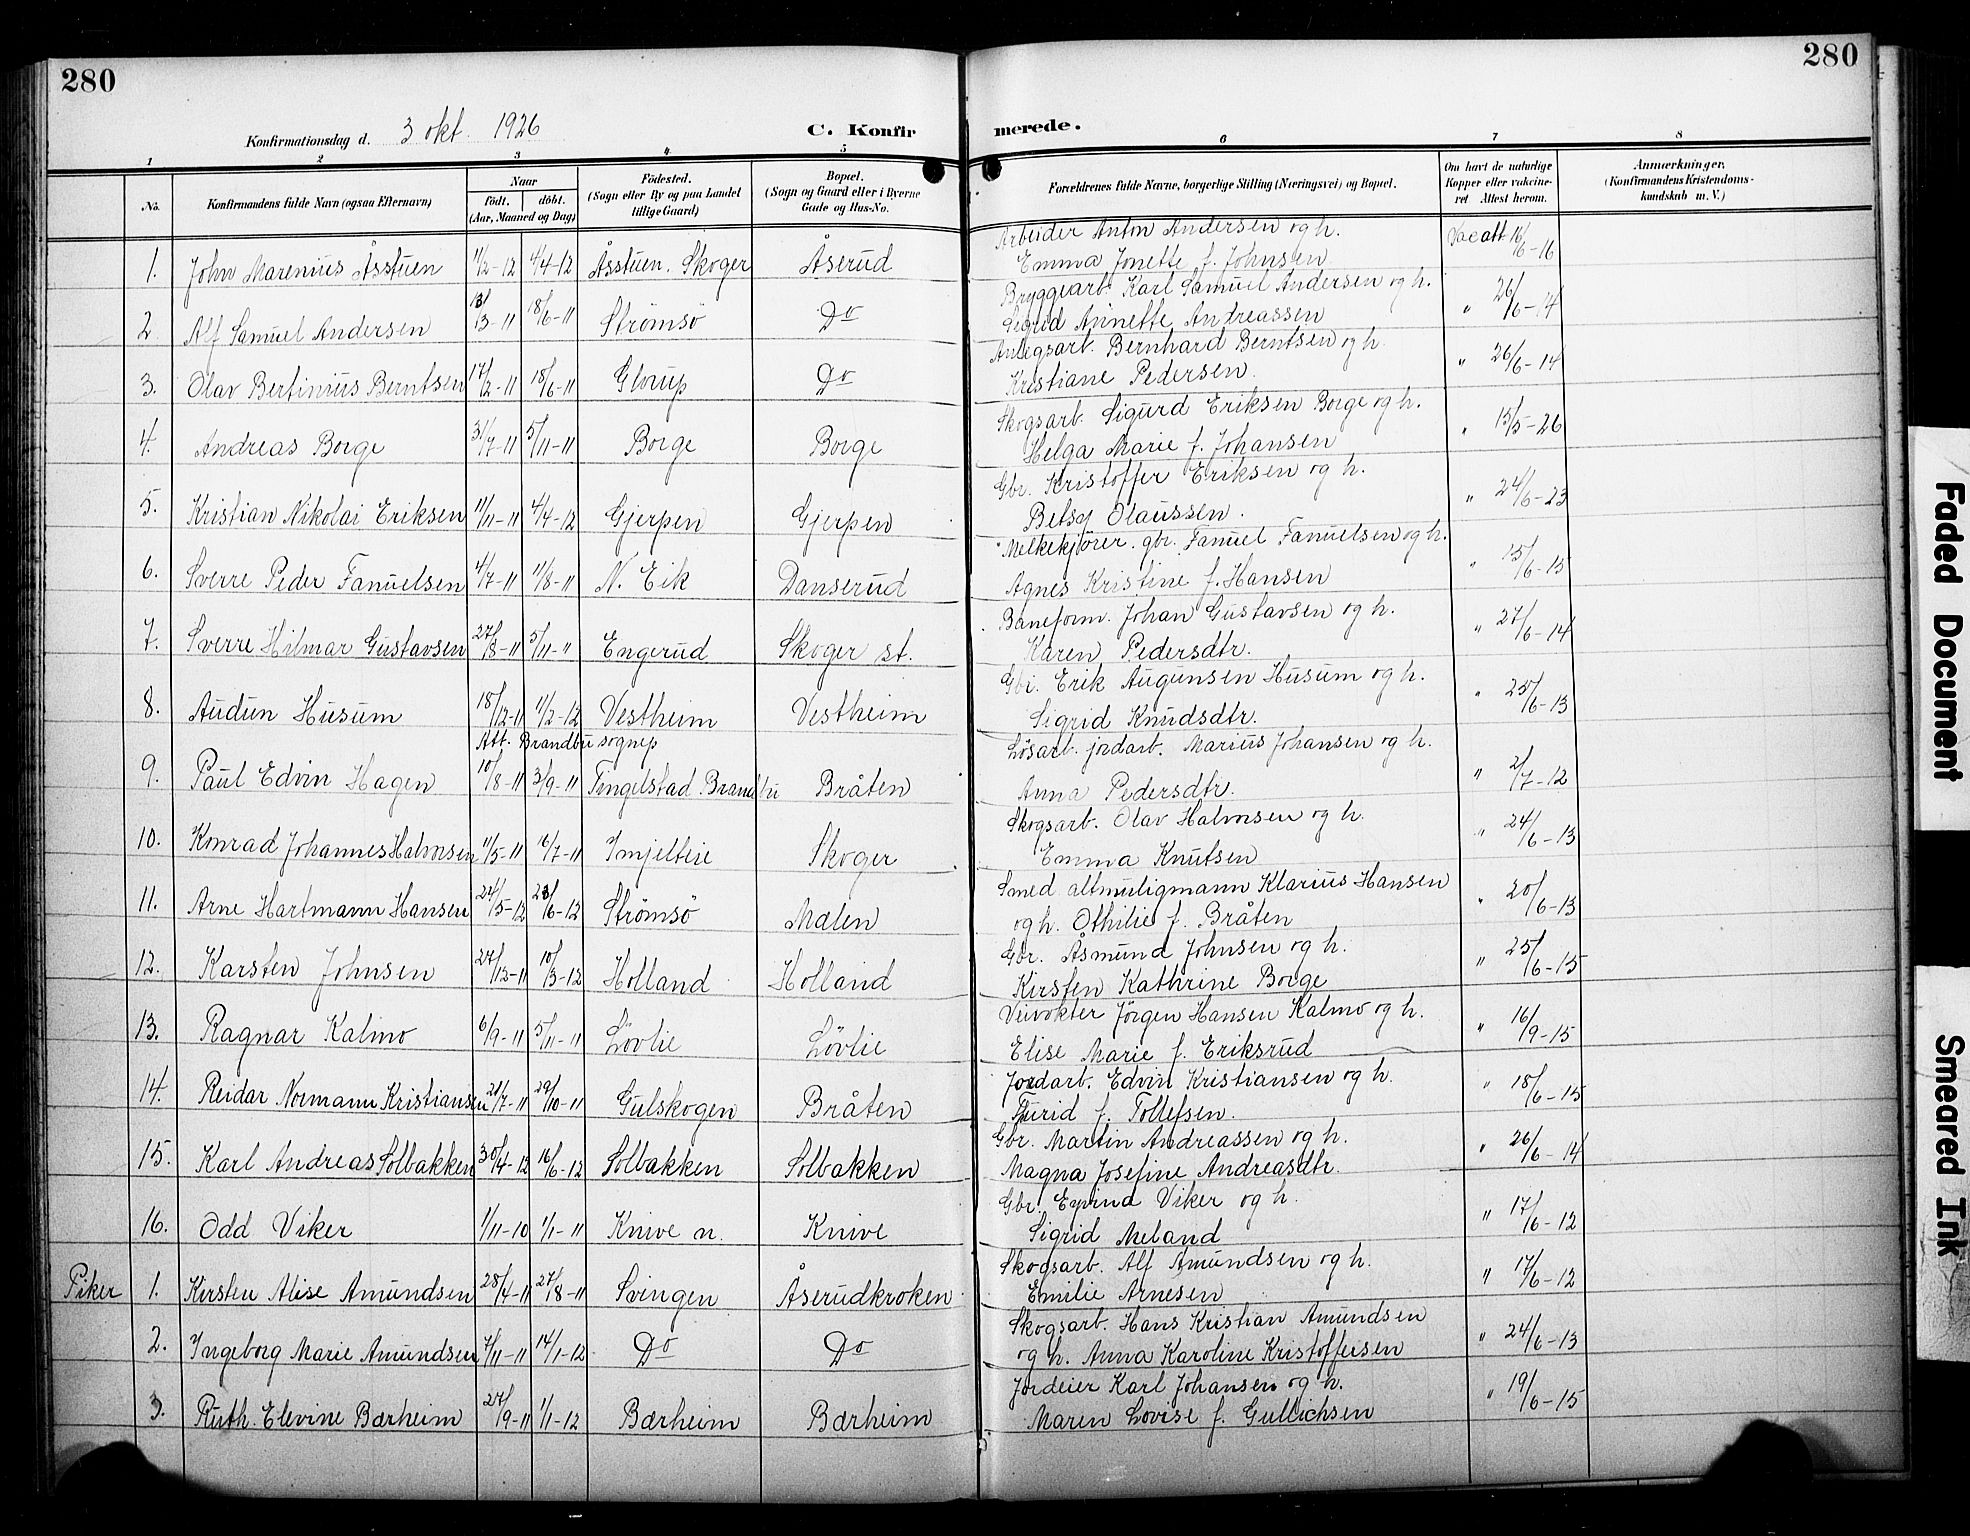 280
280
Konfirmationsdag d. 3 okt. 1926
C. Konfirmerede.
1 2 3 4 5 6 7 8
No. | Konfirmandens fulde Navn (ogsaa Efternavn) | Naar født. døbt. (Aar, Maaned og Dag) | Fødested. (Sogn eller By og paa Landet tillige Gaard) | Bopæl. (Sogn og Gaard eller i Byerne Gade og Hus-No. | Forældrenes fulde Navne, borgerlige Stilling (Næringsvei) og Bopæl. | Om havt de naturlige Kopper eller vakcineret Attest herom. | Anmærkninger. (Konfirmandens Kristendomskundskab m. V.)
1. John Marenius Åsstuen 11/2-12 4/4-12 Åsstuen. Skoger Åserud Arbeider Anton Andersen og h. Emma Jonette f. Johnsen Vac att 16/6-16
2. Alf Samuel Andersen 13/3-11 18/6-11 Strömsö Do Bryggearb. Karl Samuel Andersen og h. Sigrid Annette Andreassen " 26/6-14
3. Olav Bertinius Berntsen 17/2-11 18/6-11 Glorup Do Anlegsarb. Bernhard Berntsen og h. Kristiane Pedersen. " 26/6-14
4. Andreas Borge 31/7-11 5/11-11 Borge Borge Skogsarb. Sigurd Eriksen Borge og h. Helga Marie f. Johansen " 15/5-26
5. Kristian Nikolai Eriksen 11/11-11 4/4-12 Gjerpen Gjerpen Gbr. Kristoffer Eriksen og h. Betsy Olaussen. " 24/6-23
6. Sverre Peder Fanuelsen 4/7-11 11/8-11 N. Eik Danserud Melkekjörer. gbr. Fanuel Fanuelsen og h. Agnes Kristine f. Hansen " 15/6-15
7. Sverre Hilmar Gustavsen 27/8-11 5/11-" Engerud Skoger st. Baneform. Johan Gustavsen og h. Karen Pedersdtr. " 27/6-14
8. Audun Husum 18/12-11 11/2-12 Vestheim Vestheim Gbr. Erik Augunsen Husum og h. Sigrid Knudsdtr. " 25/6-13
Att. Brandbu sognep
9. Paul Edvin Hagen 10/8-11 3/9-11 Tingelstad Brandbu Bråten Lösarb. jordarb. Marius Johansen og h. Anna Pedersdtr. " 2/7-12
10. Konrad Johannes Halvorsen 11/5-11 16/7-11 Imjelteie Skoger Skogsarb. Olav Halvorsen og h. Emma Knutsen " 24/6-13
11. Arne Hartmann Hansen 24/5-12 23/6-12 Strömsö Malen Smed altmuligmann Klarius Hansen og h. Othilie f. Bråten " 20/6-13
12. Karsten Johnsen 27/12-11 10/3-12 Holland Holland Gbr. Åsmund Johnsen og h. Kirsten Kathrine Borge " 25/6-15
13. Ragnar Kalmo 6/9-11 5/11-11 Lövlie Lövlie Veivokter Jörgen Hansen Kalmo og h. Elise Marie f. Eriksrud " 16/9-15
14. Reidar Normann Kristiansen 21/7-11 29/10-11 Gulskogen Bråten Jordarb. Edvin Kristiansen og h. Turid f. Tollefsen. " 18/6-15
15. Karl Andreas Solbakken 30/4-12 16/6-12 Solbakken Solbakken Gbr. Martin Andreassen og h. Magna Josefine Andreasdtr. " 26/6-14
16. Odd Viker 1/11-10 1/1-11 Knive n. Knive Gbr. Eyvind Viker og h. Sigrid Meland " 17/6-12
Piker 1. Kirsten Alise Amundsen 28/4-11 27/8-11 Svingen Åserudkroken Skogsarb. Alf Amundsen og h. Emilie Arnesen " 17/6-12
2. Ingeborg Marie Amundsen 4/11-11 14/1-12 Do Do Skogsarb. Hans Kristian Amundsen og h. Anna Karoline Kristoffersen " 24/6-13
3. Ruth Elevine Bærheim 27/9-11 1/1-12 Bærheim Bærheim Jordeier Karl Johansen og h. Maren Lovise f. Gullichsen " 19/6-15
Faded Document
Smeared Ink